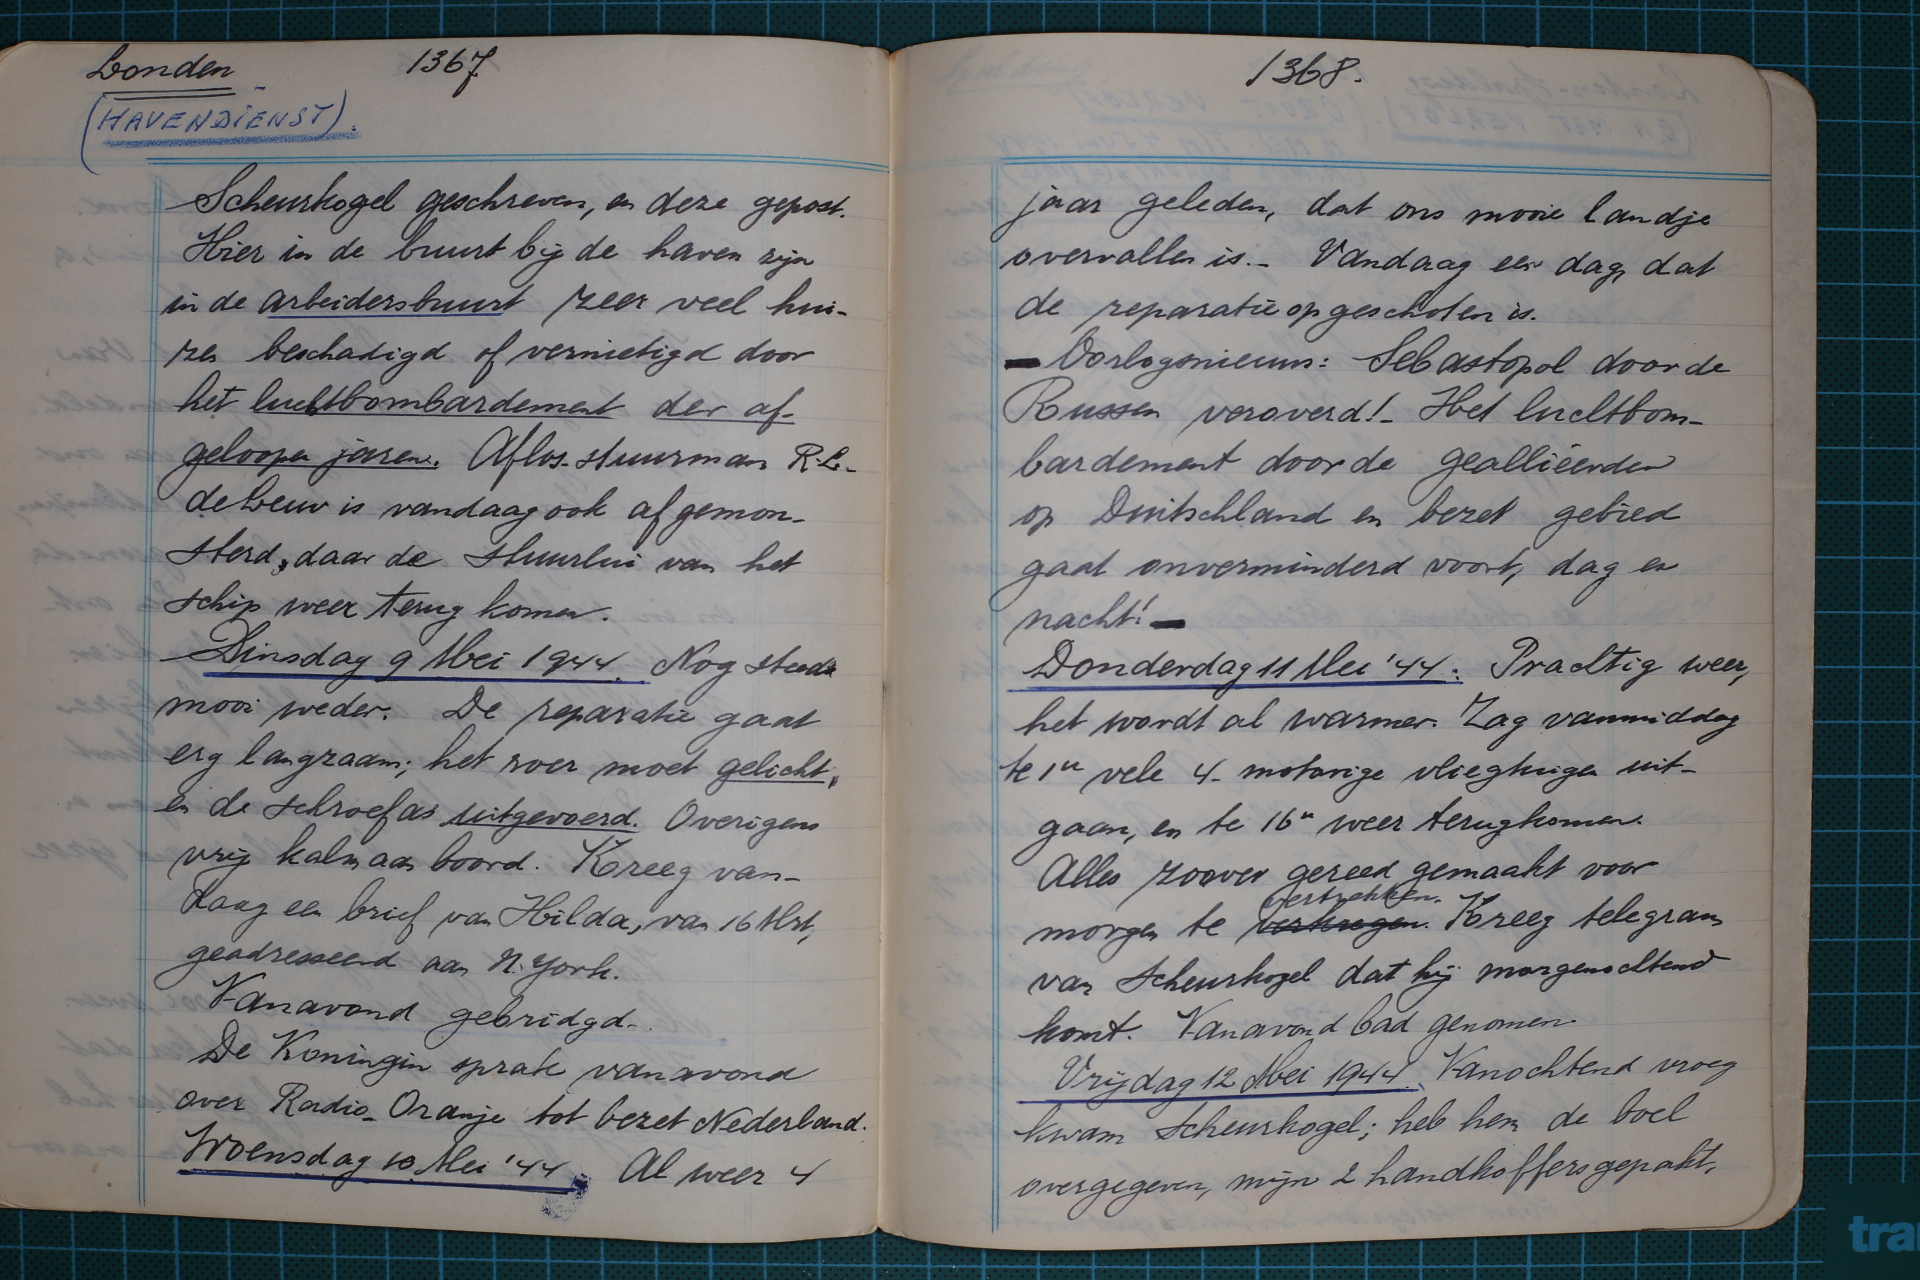 Londen 1367
(HAVENDIENST).
Scheurkogel geschreven, en deze gepost.
Hier in de buurt bij de haven zijn
in de arbeidersbuurt zeer veel hui-
zen beschadigd of vernietigd door
het luchtbombardement der af-
geloopen jaren. Aflos-stuurman R.L.
de Leeuw is vandaag ook afgemon-
sterd, daar de stuurlui van het
schip weer terug komen.
Dinsdag 9 Mei 1944. Nog steeds
mooi weder. De reparatie gaat
erg langzaam; het roer moet gelicht,
en de schroefas uitgevoerd. Overigens
vrij kalm aan boord. Kreeg van-
daag een brief van Hilda, van 16 Mrt,
geadresseerd aan N.York.
Vanavond gebridgd.
De Koningin sprak vanavond
over Radio-Oranje tot bezet Nederland.
Woensdag 10 Mei '44. Al weer 4
1368.
jaar geleden, dat ons mooie landje
overvallen is.- Vandaag een dag, dat
de reparatie opgeschoten is.
- Oorlogsnieuws: Sebastopol door de
Russen veroverd!- Het luchtbom-
bardement door de geallieerden
op Duitschland en bezet gebied
gaat onverminderd voort, dag en
nacht!-
Donderdag 11 Mei '44: Prachtig weer,
het wordt al warmer. Zag vanmiddag
te 1u vele 4-motorige vliegtuigen uit-
gaan, en te 16u weer terugkomen.
Alles zoover gereed gemaakt voor
vertrekken.
morgen te verkregen. Kreeg telegram
van Scheurkogel dat hij morgenochtend
komt. Vanavond bad genomen
Vrijdag 12 Mei 1944. Vanochtend vroeg
kwam Scheurkogel; heb hem de boel
overgegeven, mijn 2 handkoffers gepakt,